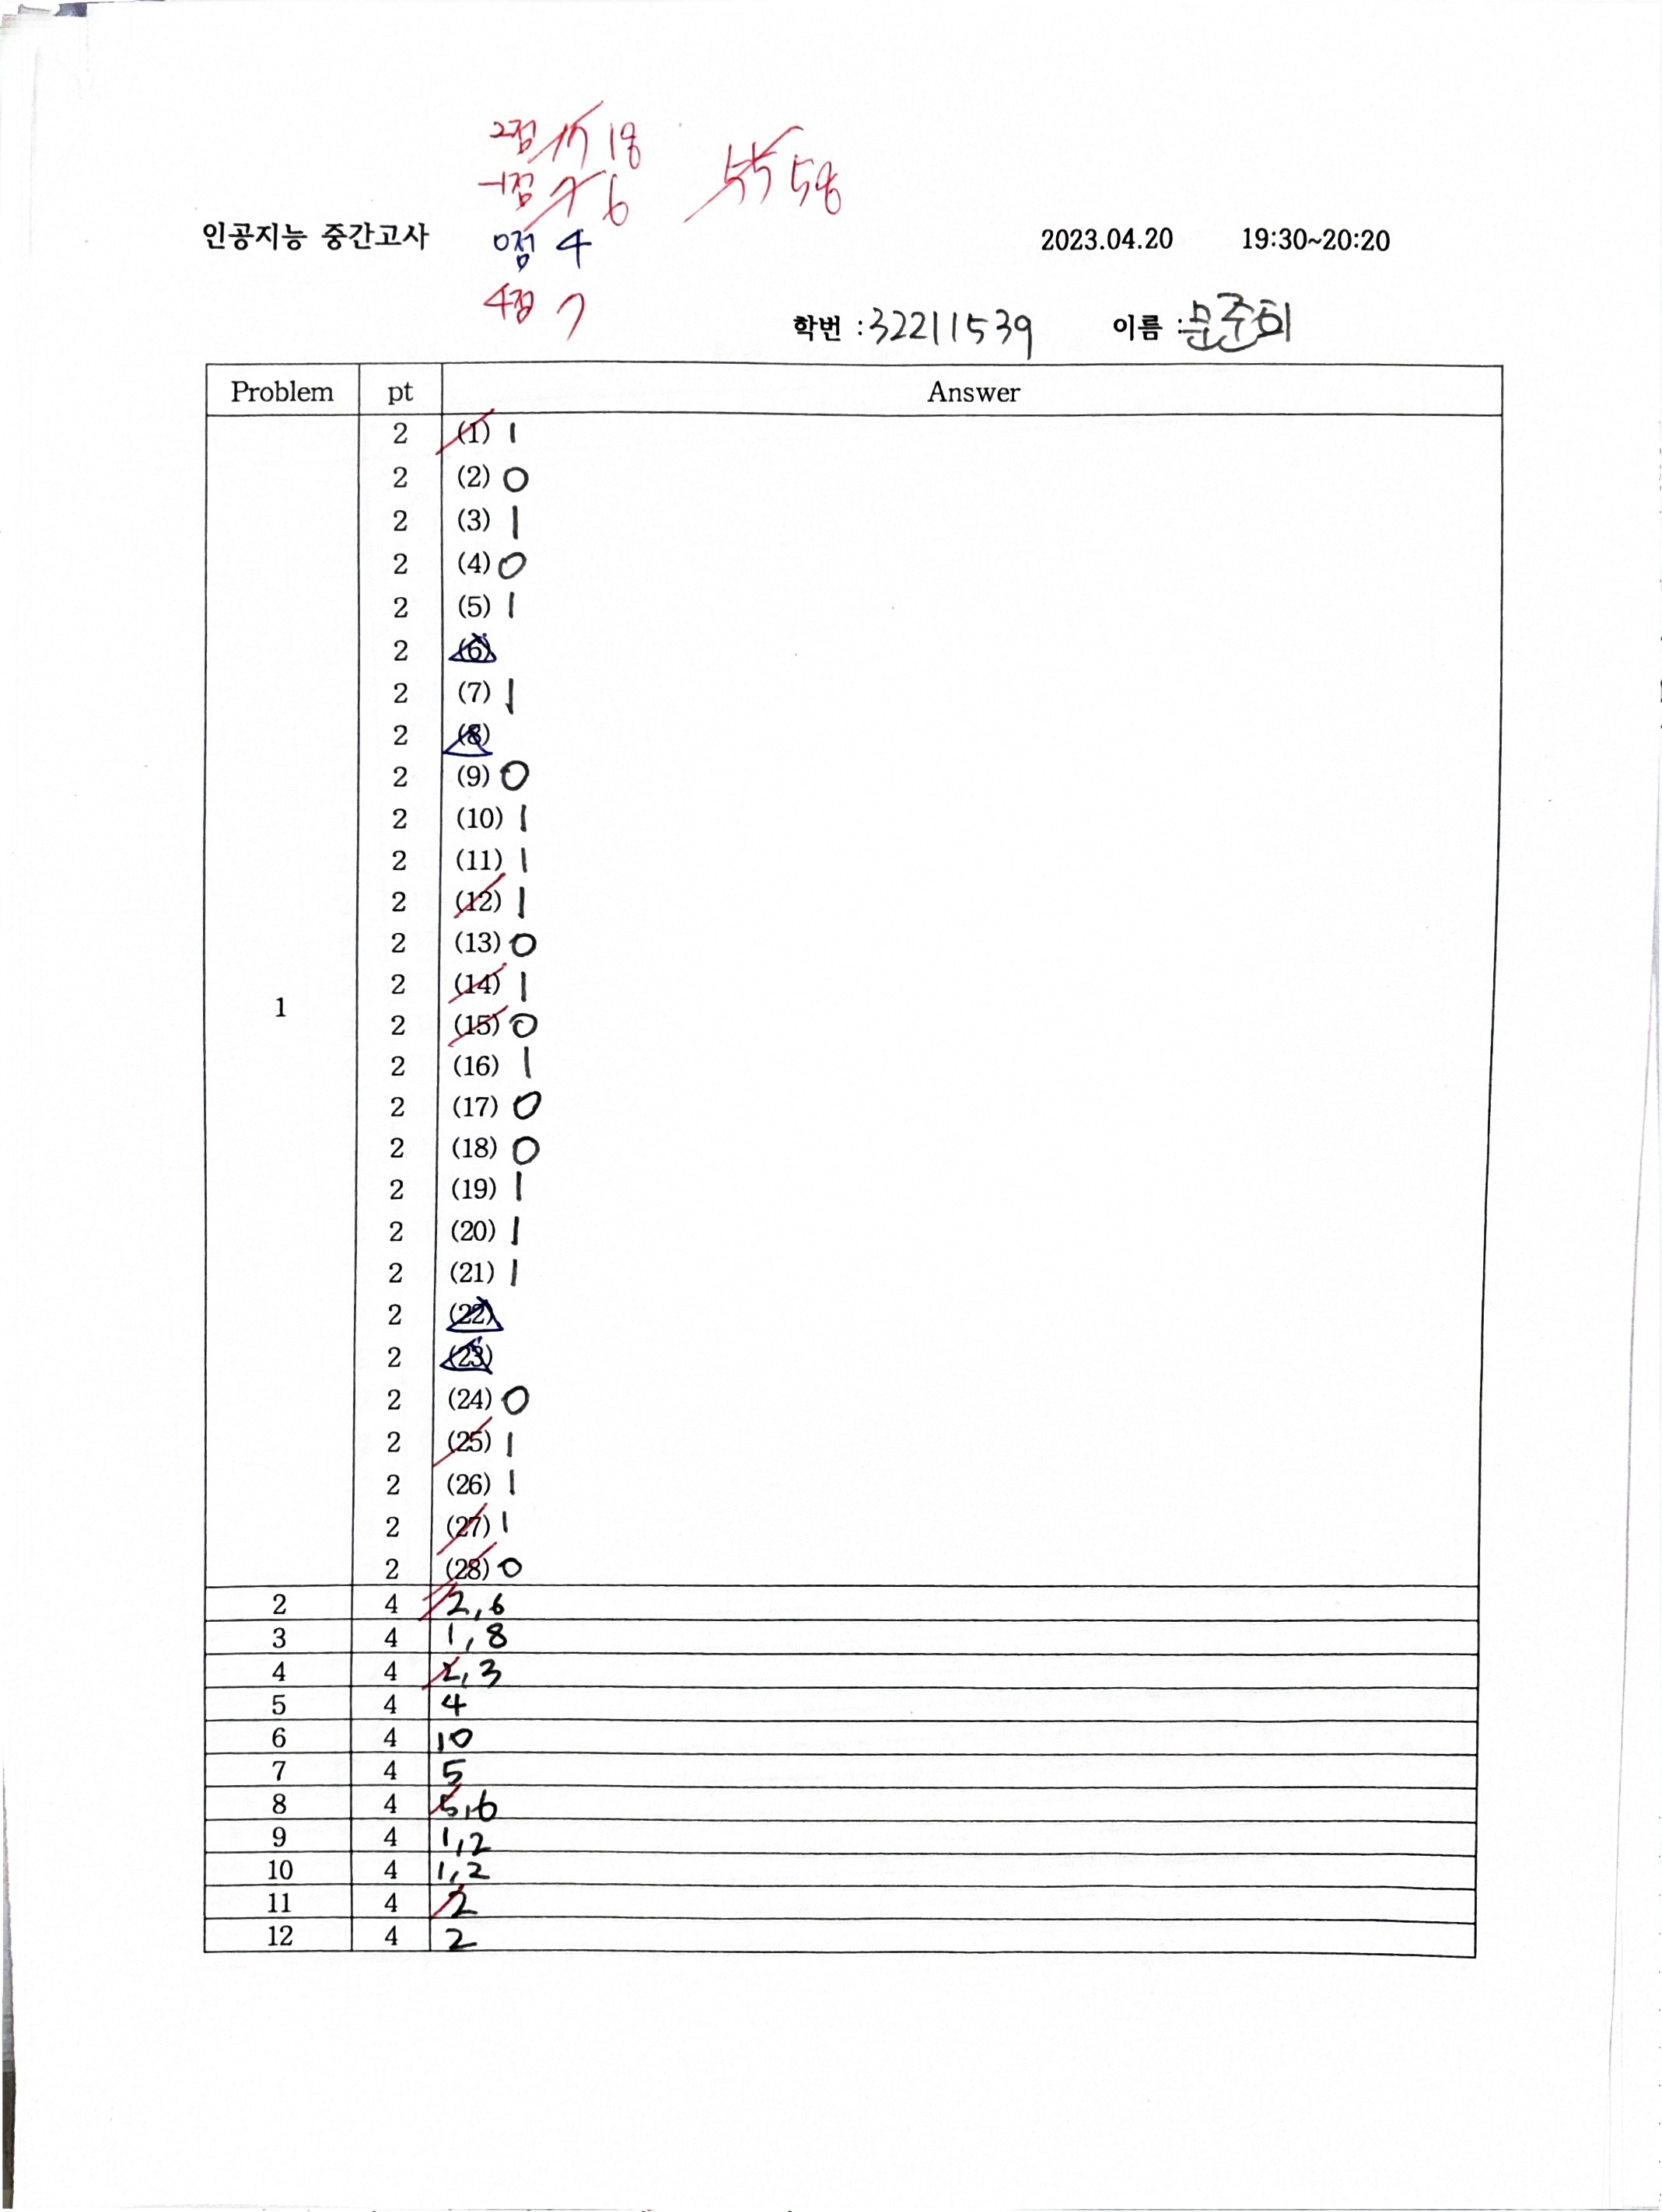 2점 17 18
-1점 7 6 55 58
인공지능 중간고사 0점 4 2023.04.20 19:30~20:20
4점 7
학번 : 32211539 이름 : 문준희
Problem pt Answer
2 (1) 1
2 (2) 0
2 (3) 1
2 (4) 0
2 (5) 1
2 (6)
2 (7) 1
2 (8)
2 (9) 0
2 (10) 1
2 (11) 1
2 (12) 1
2 (13) 0
2 (14) 1
1
2 (15) 0
2 (16) 1
2 (17) 0
2 (18) 0
2 (19) 1
2 (20) 1
2 (21) 1
2 (22)
2 (23)
2 (24) 0
2 (25) 1
2 (26) 1
2 (27) 1
2 (28) 0
2 4 2, 6
3 4 1, 8
4 4 2, 3
5 4 4
6 4 10
7 4 5
8 4 5, 6
9 4 1, 2
10 4 1, 2
11 4 2
12 4 2